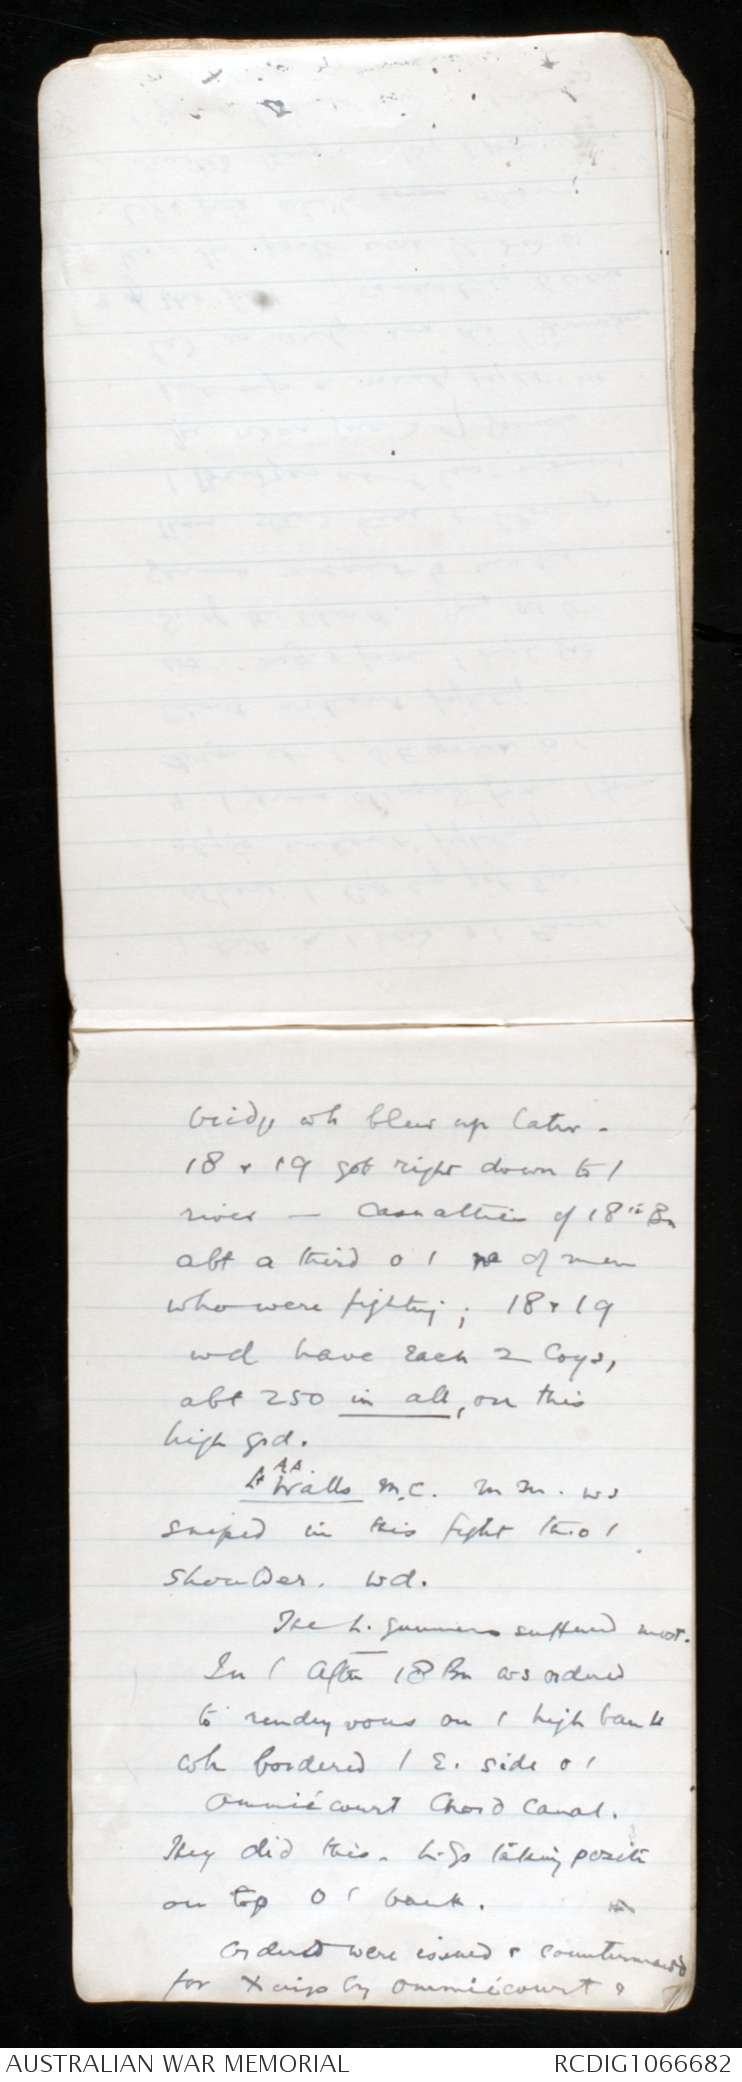 bridge wh blew up later.
18 & 19 got right down to /
river — Casualties of 18th Bn
abt a third o / no of men
who were fighting; 18 & 19
wd have each 2 Coys,
abt 250 in all, on this
high grd.
Lt A.A. Wallo M.C. M.M. ws
sniped in this fight thro /
shoulder. wd.
The L. gunners suffered most.
In / aftn 18 Bn ws ordered
to rendezvous on / high bank
wh bordered / E. side o /
Ommiécourt Chord Canal.
They did this. L.Gs taking positn
on top o / bank.
Orders were issued & countermanded
for Xings by Ommiécourt &
AUSTRALIAN WAR MEMORIAL
RCDIG1066682